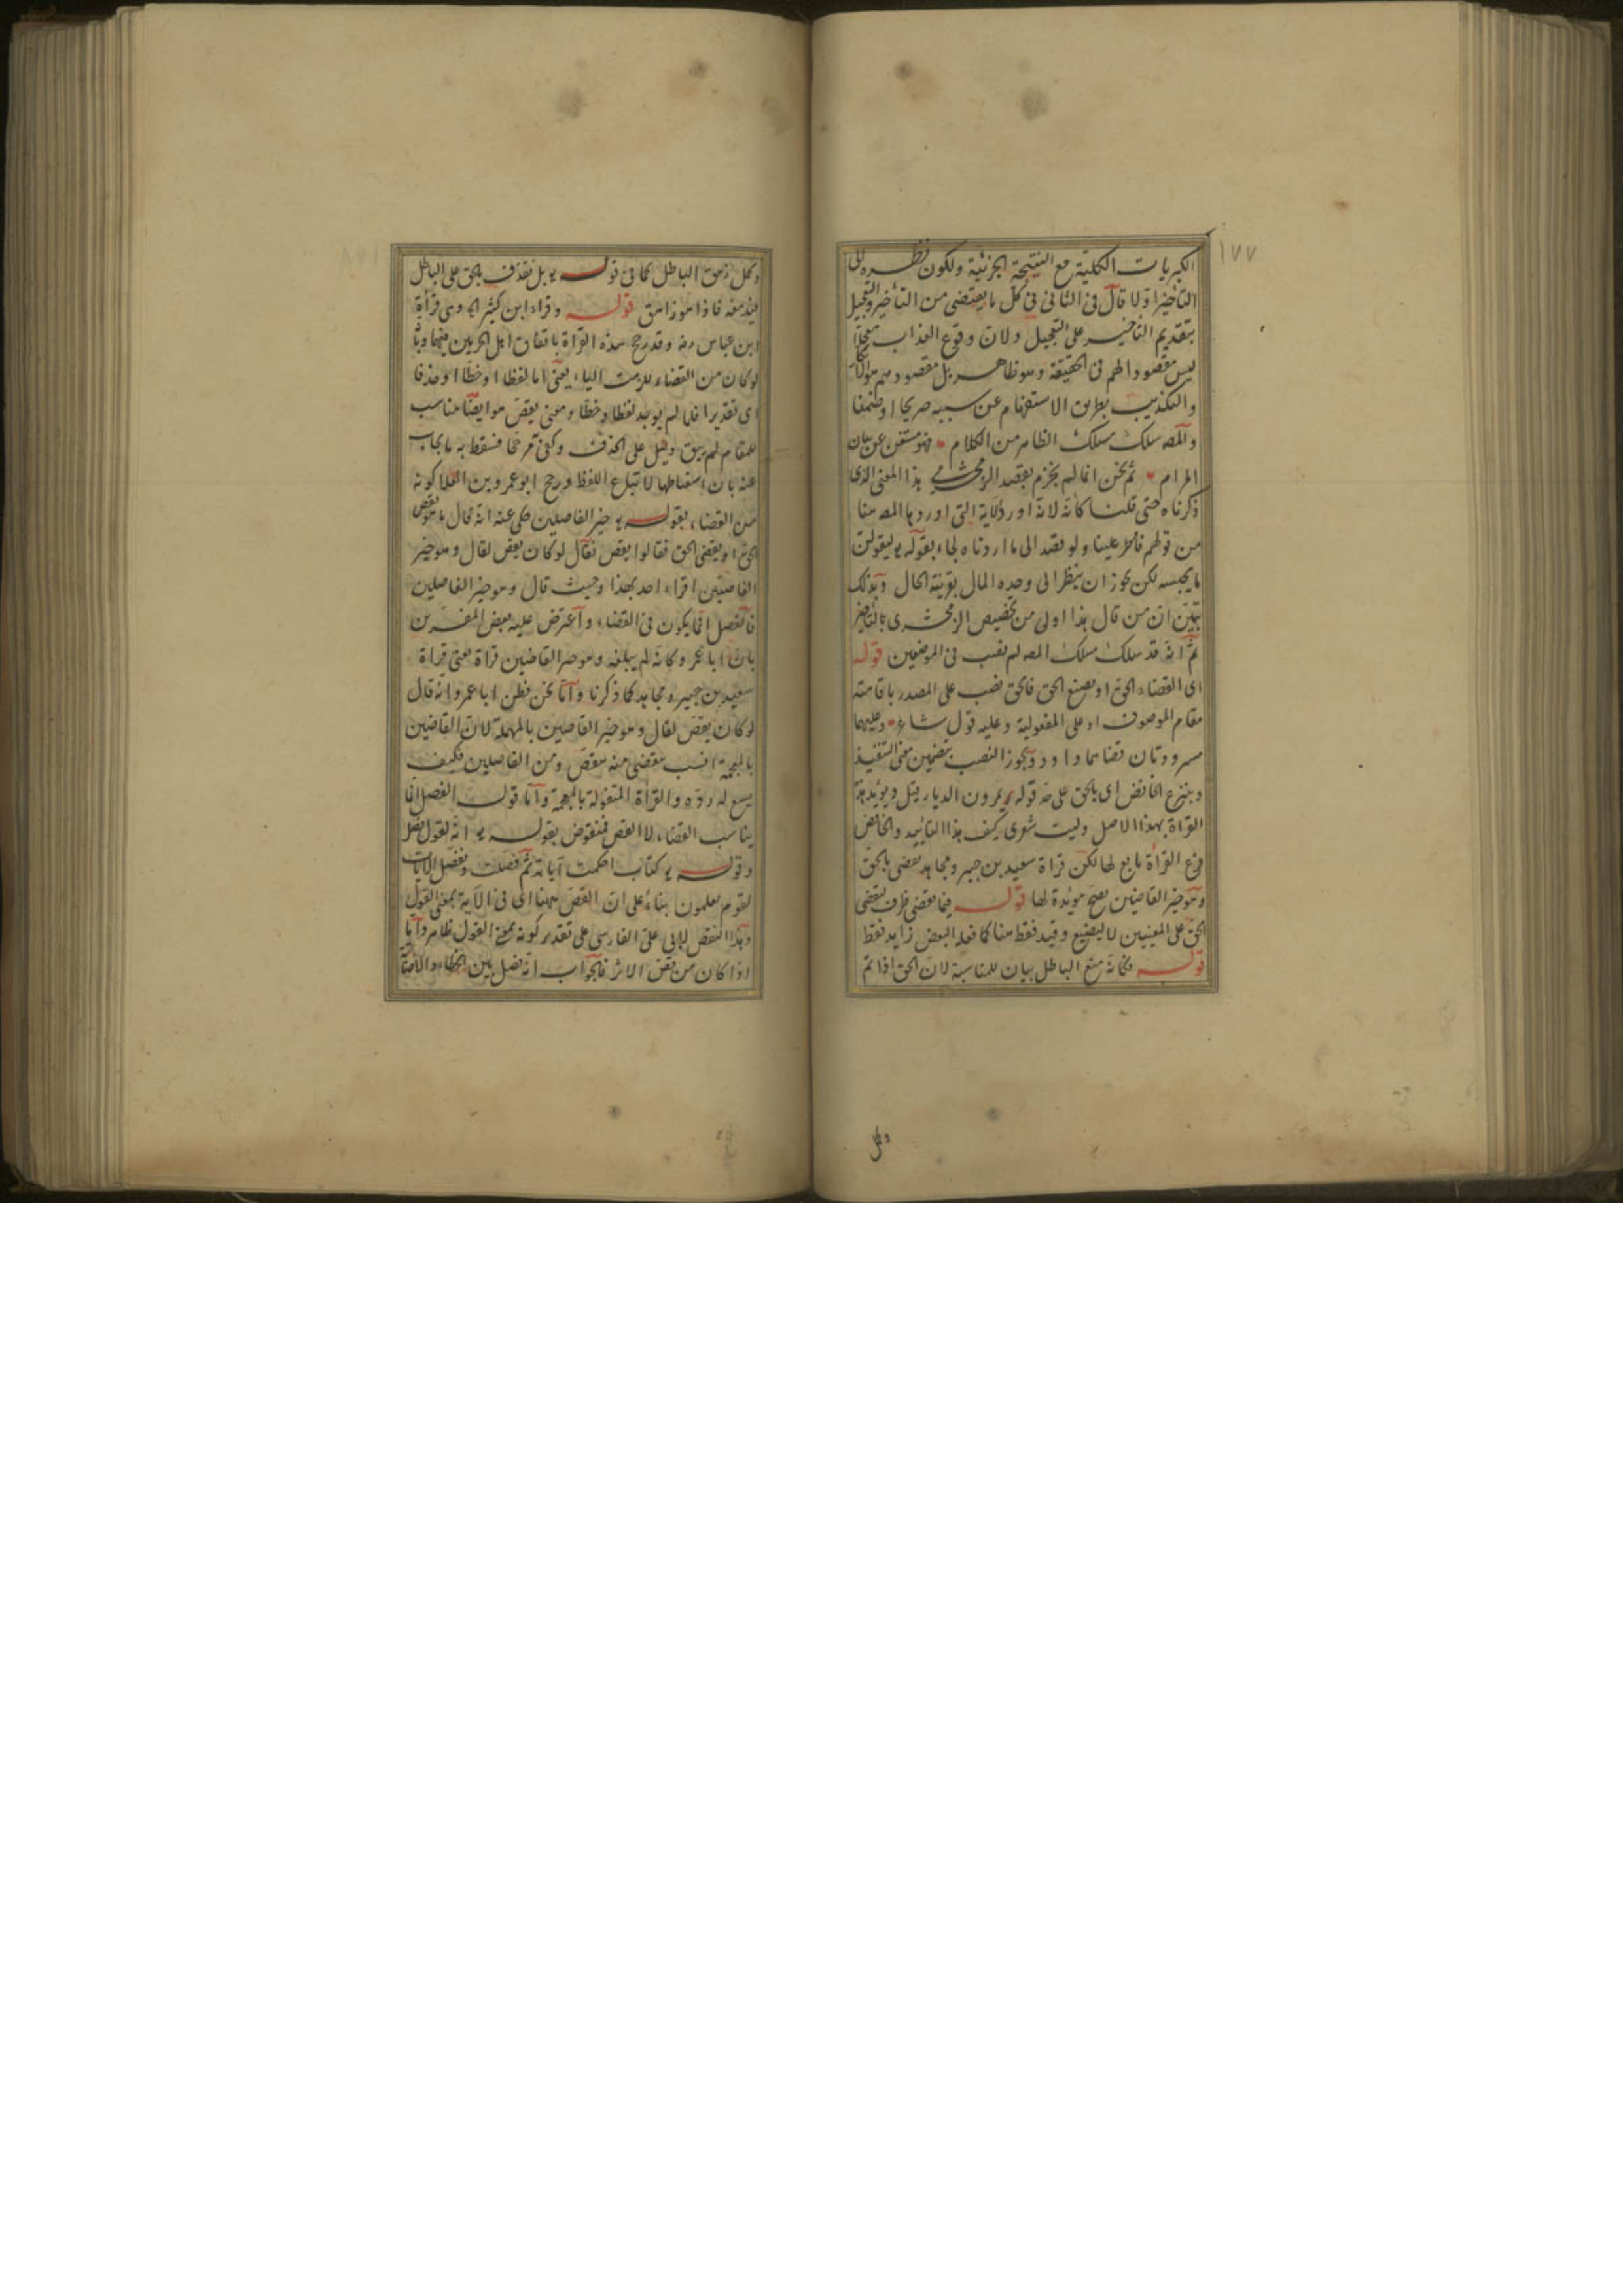 ١٧٧
الكبريات الكلية مع النتيجة الجزئية ولكون نظره الى
التأخير اولا قال فى الثانى فى كل ما يقتضى من التأخير والتعجيل
بتقديم التأخير على التعجيل ولان وقوع العذاب معجلا
ليس مقصودا لهم فى الحقيقة وهو ظاهر بل مقصودهم هو
والتكذيب بطريق الاستفهام عن سببه صريحا او ضمنا
والمصه سلك مسلك الظاهر من الكلام فهو مستغن عن بيان
المرام ثم نحن انما لم نجزم بقصد الزمخشرى هذا المعنى الذى
ذكرناه حتى قلنا كانه لانه اورد الاية التى اوردها المصه هنا
من قولهم فامطر علينا ولو قصد الى ما اردناه لجاء بقوله ليقولن
ما يحبسه لكن يجوز ان ينظر الى وحده المال بقرينة الحال وبذلك
تبين ان من قال هذا اولى من تخصيص الزمخشرى بالتأخير
ثم انه قد سلك مسلك المصه لم يصب فى الموضعين قوله
اى القضاء الحق او يصنع الحق فالحق نصب على المصدر باقامته
مقام الموصوف او على المفعولية وعليه قول شاعر وعليهما
مسرودتان قضاهما داود ويجوز النصب بتضمين معنى التنفيذ
وبنزع الخافض اى بالحق على حد قوله يمرون الديار قيل ويؤيد هذه
القرأة بهذا الاصل وليت شعرى كيف هذا التأييد والخافض
فرع القرأة تابع لها لكن قرأة سعيد بن جبير ومجاهد يقضى بالحق
وهو خير القاضين يصح مؤيدة لها قوله فيما يقضى ظرف ليقضى
الحق على المعنيين لا ليصنع وقيد فقط هنا كما فعله البعض زايد فقط
قوله فكأنه منع الباطل بيان للمناسبة لان الحق اذا تم
وكمل
وكمل زهق الباطل كما فى قوله بل نقذف بالحق على الباطل
فيدمغه فاذا هو زاهق قوله وقراء ابن كثير الخ وهى قرأة
ابن عباس رضه وقد رجح هذه القرأة باتفاق اهل الحرمين عليها وبانه
لو كان من القضاء للزمت الياء يعنى اما لفظا وخطا او حذفا
اى تقديرا فلما لم يوجد لفظا وخطا ومعنى يقص هو ايضا مناسب
للمقام لم يبق دليل على الحذف وكفى مرجحا فسقط به ما يجاب
عنه بان اسقاطها لاتباع اللفظ ورجح ابو عمرو بن العلا كونه
من القضاء بقوله خير الفاصلين حكى عنه انه قال اهو يقص
الحق او يقضى الحق فقالوا يقص فقال لو كان يقص لقال وهو خير
القاصين اقراء احد بهذا وحيث قال وهو خير الفاصلين
فالفصل انما يكون فى القضاء واعترض عليه بعض المفسرين
بان ابا عمرو كانه لم يبلغه وهو خير القاضين قرأة يعنى قرأة
سعيد بن جبير ومجاهد كما ذكرنا واما نحن فظن ابا عمرو انه قال
لو كان يقص لقال وهو خير القاصين بالمهملة لان القاضين
بالمعجمة انسب بيقضى منه بيقص ومن الفاصلين فكيف
يسع له رده والقرأة المنقولة بالمعجمة واما قوله الفصل انما
يناسب القضاء لا القص فمنقوض بقوله انه لقول فصل
وقوله كتاب احكمت آياته ثم فصلت ونفصل الآيات
لقوم يعلمون بناء على ان القص ههنا اى فى الآية بمعنى القول
وهذا النقض لابى على الفارسى على تقدير كونه بمعنى القول ظاهر واما
اذا كان من قص الاثر فالجواب انه فصل بين الخطاء والاصابة